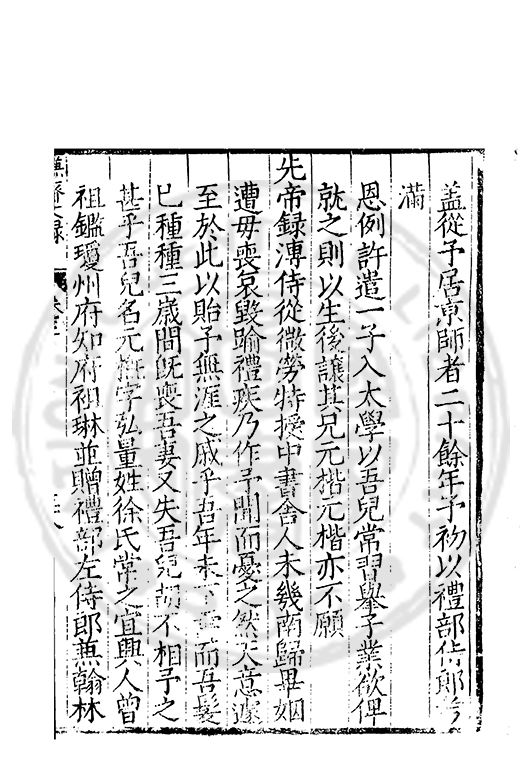 蓋從予居京師者二十餘年予初以禮部侍郎考
滿
恩例許遣一子入太學以吾兒常習舉子業欲俾
就之則以生後讓其兄元楷元楷亦不願
先帝録溥侍從微勞特授中書舍人未幾南歸畢姻
遭母喪哀毀踰禮疾乃作予聞而憂之然天意遽
至於此以貽予無涯之戚乎吾年未而吾髮
巳種種三歲間旣喪吾妻又失吾兒胡不相予之
甚乎吾兒名元字弘量姓徐氏常之宜興人曾
祖鑑瓊州府知府祖琳並贈禮部左侍郎蕪翰林